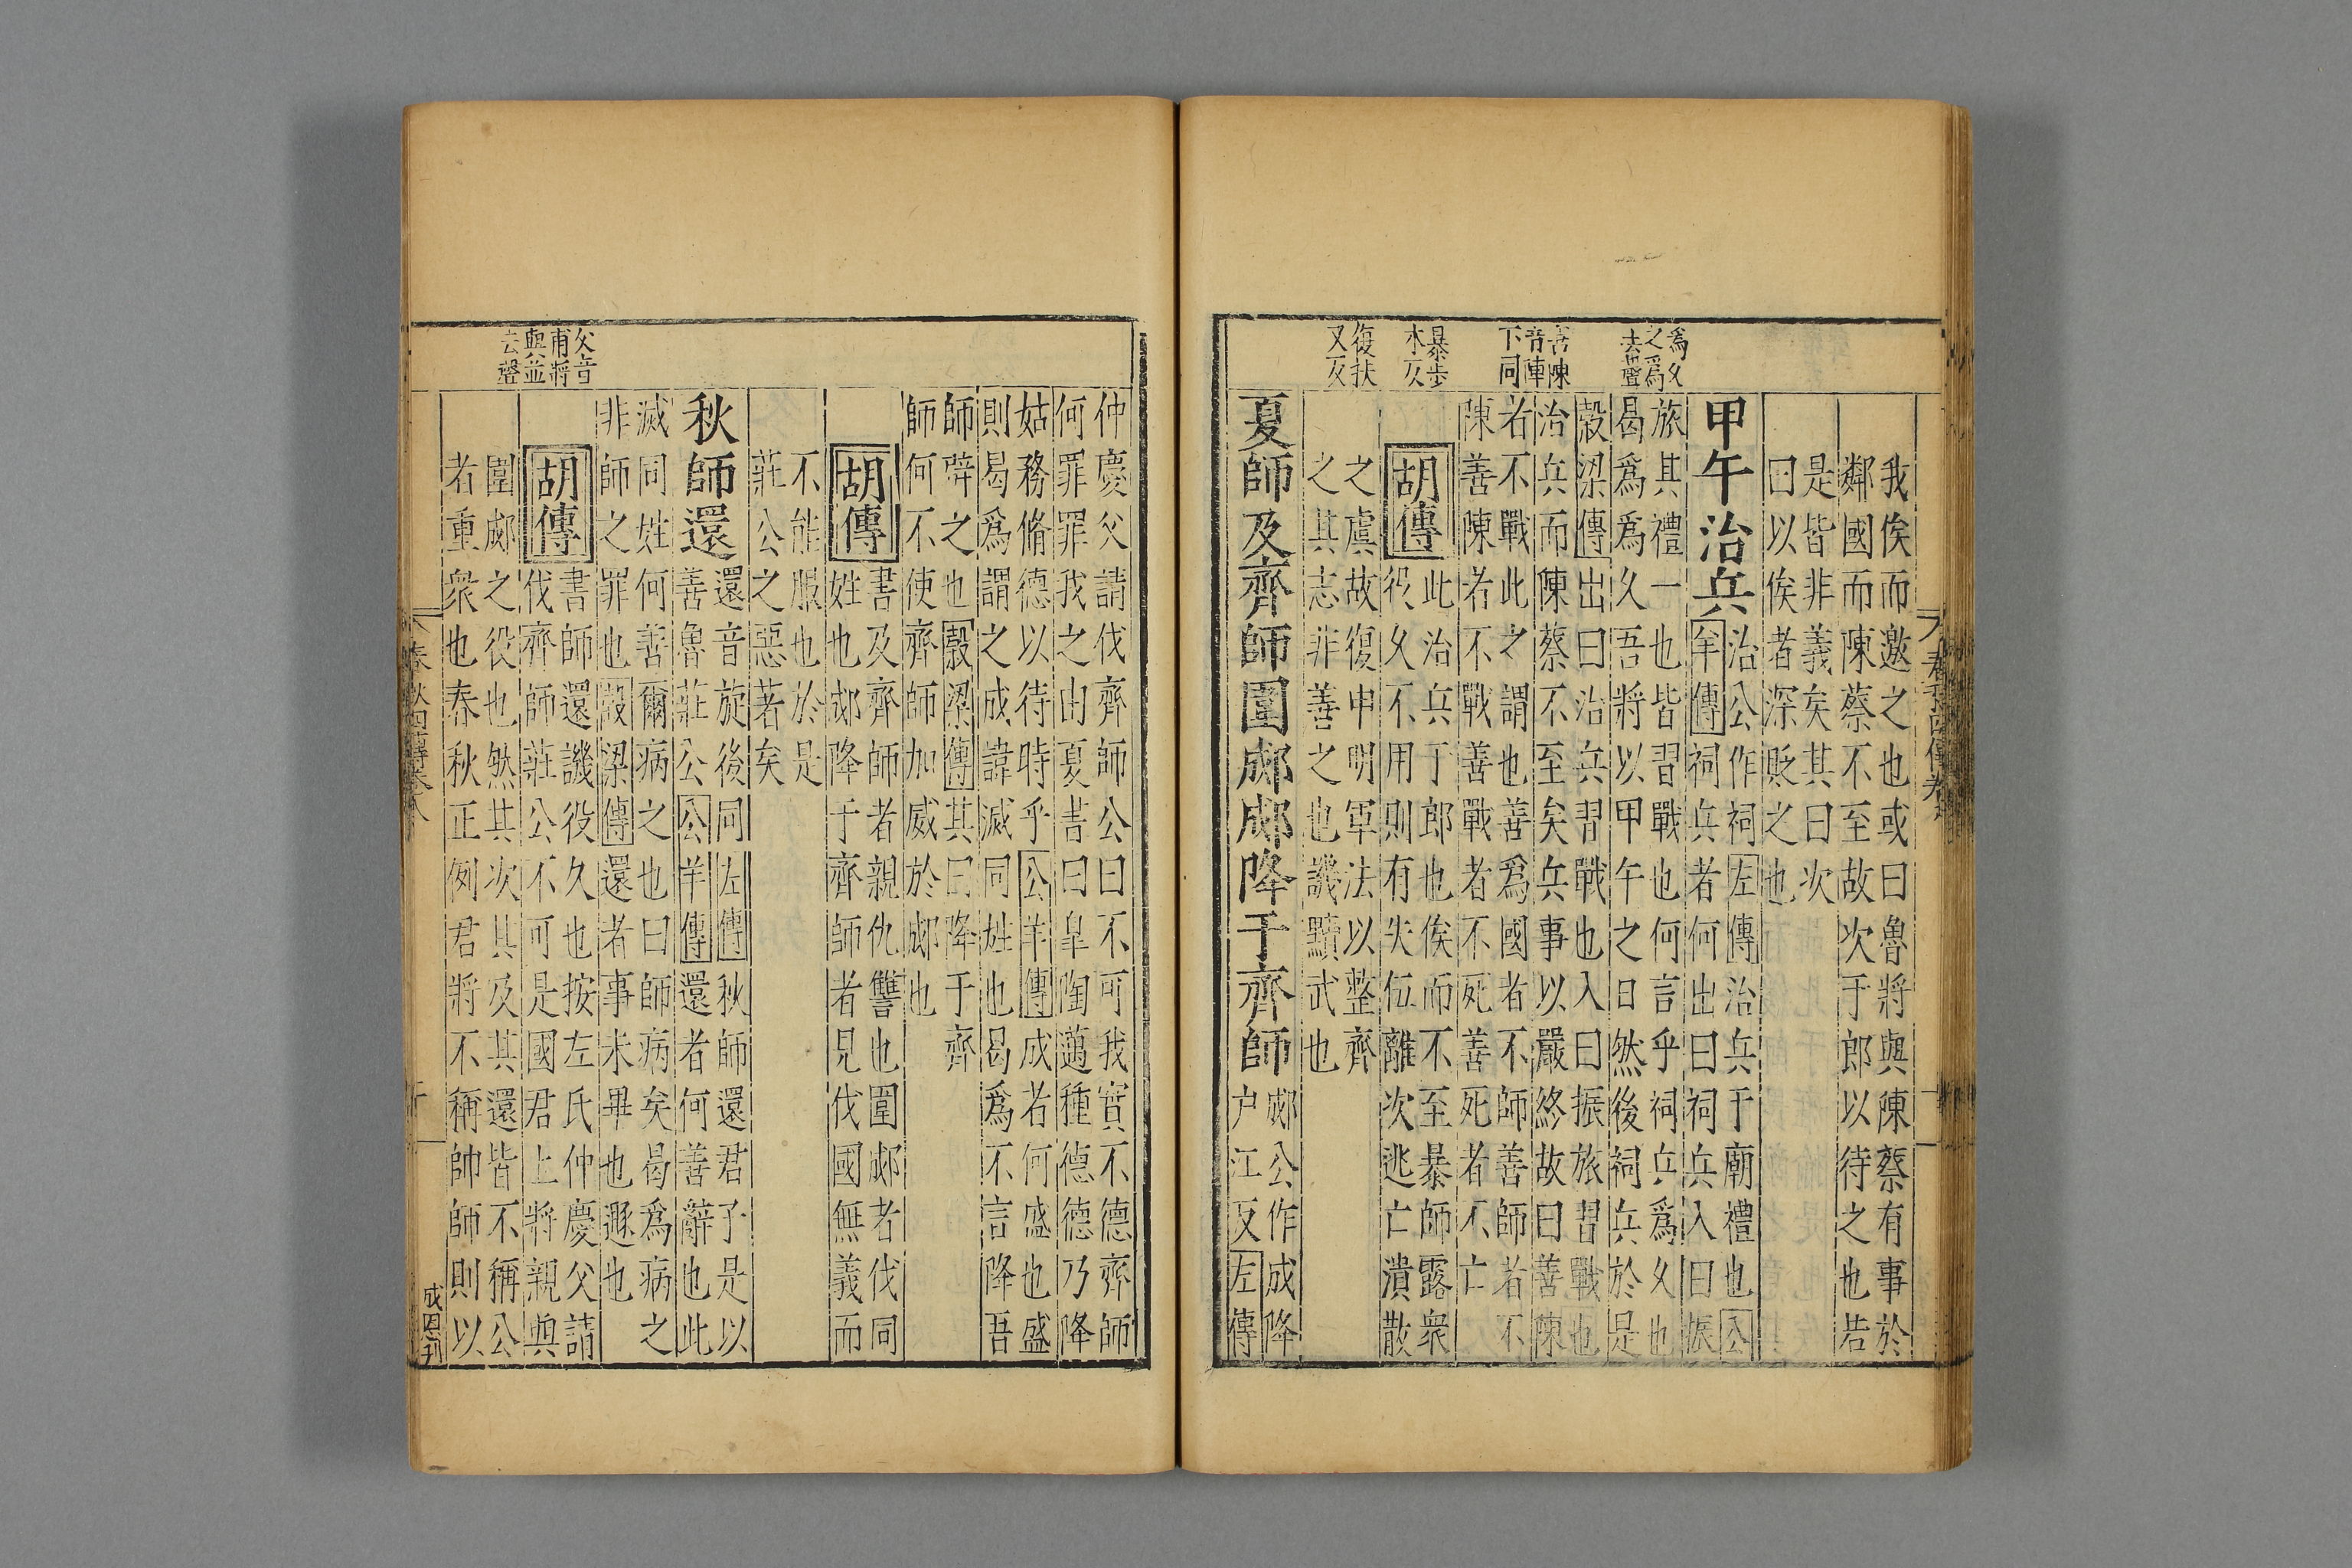 爲久
之爲
去聲
善陳
音陣
下同
暴步
木反
復扶
又反
我俟而邀之也或曰魯將與陳蔡有事於
鄰國而陳蔡不至故次于郎以待之也若
是皆非義矣其曰次
曰以俟者深貶之也
甲午治兵
治公作祠左傳治兵于廟禮也公
羊傳祠兵者何出曰祠兵入曰振
旅其禮一也皆習戰也何言乎祠兵爲久也
曷爲爲久吾將以甲午之日然後祠兵於是
穀梁傳出曰治兵習戰也入曰振旅習戰也
治兵而陳蔡不至矣兵事以嚴終故曰善陳
者不戰此之謂也善爲國者不師善師者不
陳善陳者不戰善戰者不死善死者不亡
胡傳
此治兵于郎也俟而不至暴師露衆
役久不用則有失伍離次逃亡潰散
之虞故復申明軍法以整齊
之其志非善之也譏黷武也
夏師及齊師圍郕郕降于齊師
郕公作成降
户江反左傳
父音
甫將
與並
去聲
仲慶父請伐齊師公曰不可我實不德齊師
何罪罪我之由夏書曰皐陶邁種德德乃降
姑務脩德以待時乎公羊傳成者何盛也盛
則曷爲謂之成諱滅同姓也曷爲不言降吾
師辟之也穀梁傳其曰降于齊
師何不使齊師加威於郕也
胡傳
書及齊師者親仇讐也圍郕者伐同
姓也郕降于齊師者見伐國無義而
不能服也於是
莊公之惡著矣
秋師還
還音旋後同左傳秋師還君子是以
善魯莊公公羊傳還者何善辭也此
滅同姓何善爾病之也曰師病矣曷爲病之
非師之罪也穀梁傳還者事未畢也遯也
胡傳
書師還譏役久也按左氏仲慶父請
伐齊師莊公不可是國君上將親與
圍郕之役也然其次其及其還皆不稱公
者重衆也春秋正例君將不稱帥師則以
春秋四傳卷八
成恩刊